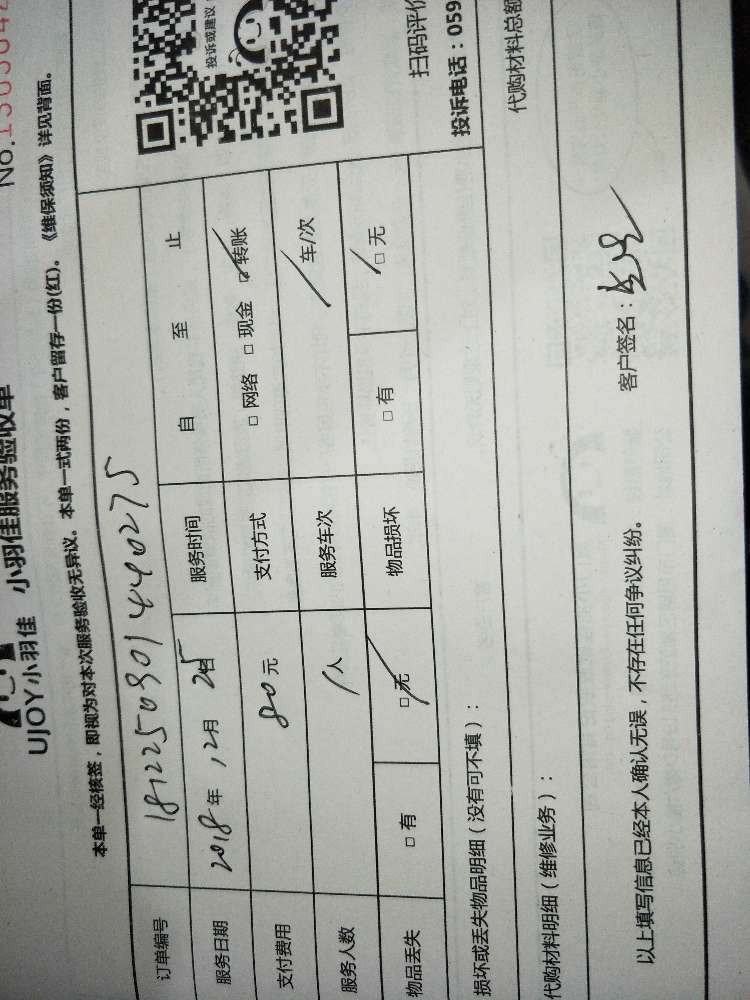 UJOY小羽佳 小羽佳服务验收单
本单一经核签，即视为对本次服务验收无异议。本单一式两份，客户留存一份(红)。《维保须知》详见背面。
订单编号 181225090144 0275
服务日期 2018年12月25日 服务时间 自 至 止
支付费用 80元 支付方式 □ 网络 □ 现金 □ 转账
服务人数 1人 服务车次 / 车/次
物品丢失 □ 有 □ 无 物品损坏 □ 有 □ 无
投诉或建议
扫码评价
投诉电话：059
损坏或丢失物品明细（没有可不填）：
代购材料明细（维修业务）： 代购材料总额
以上填写信息已经本人确认无误，不存在任何争议纠纷。 客户签名：